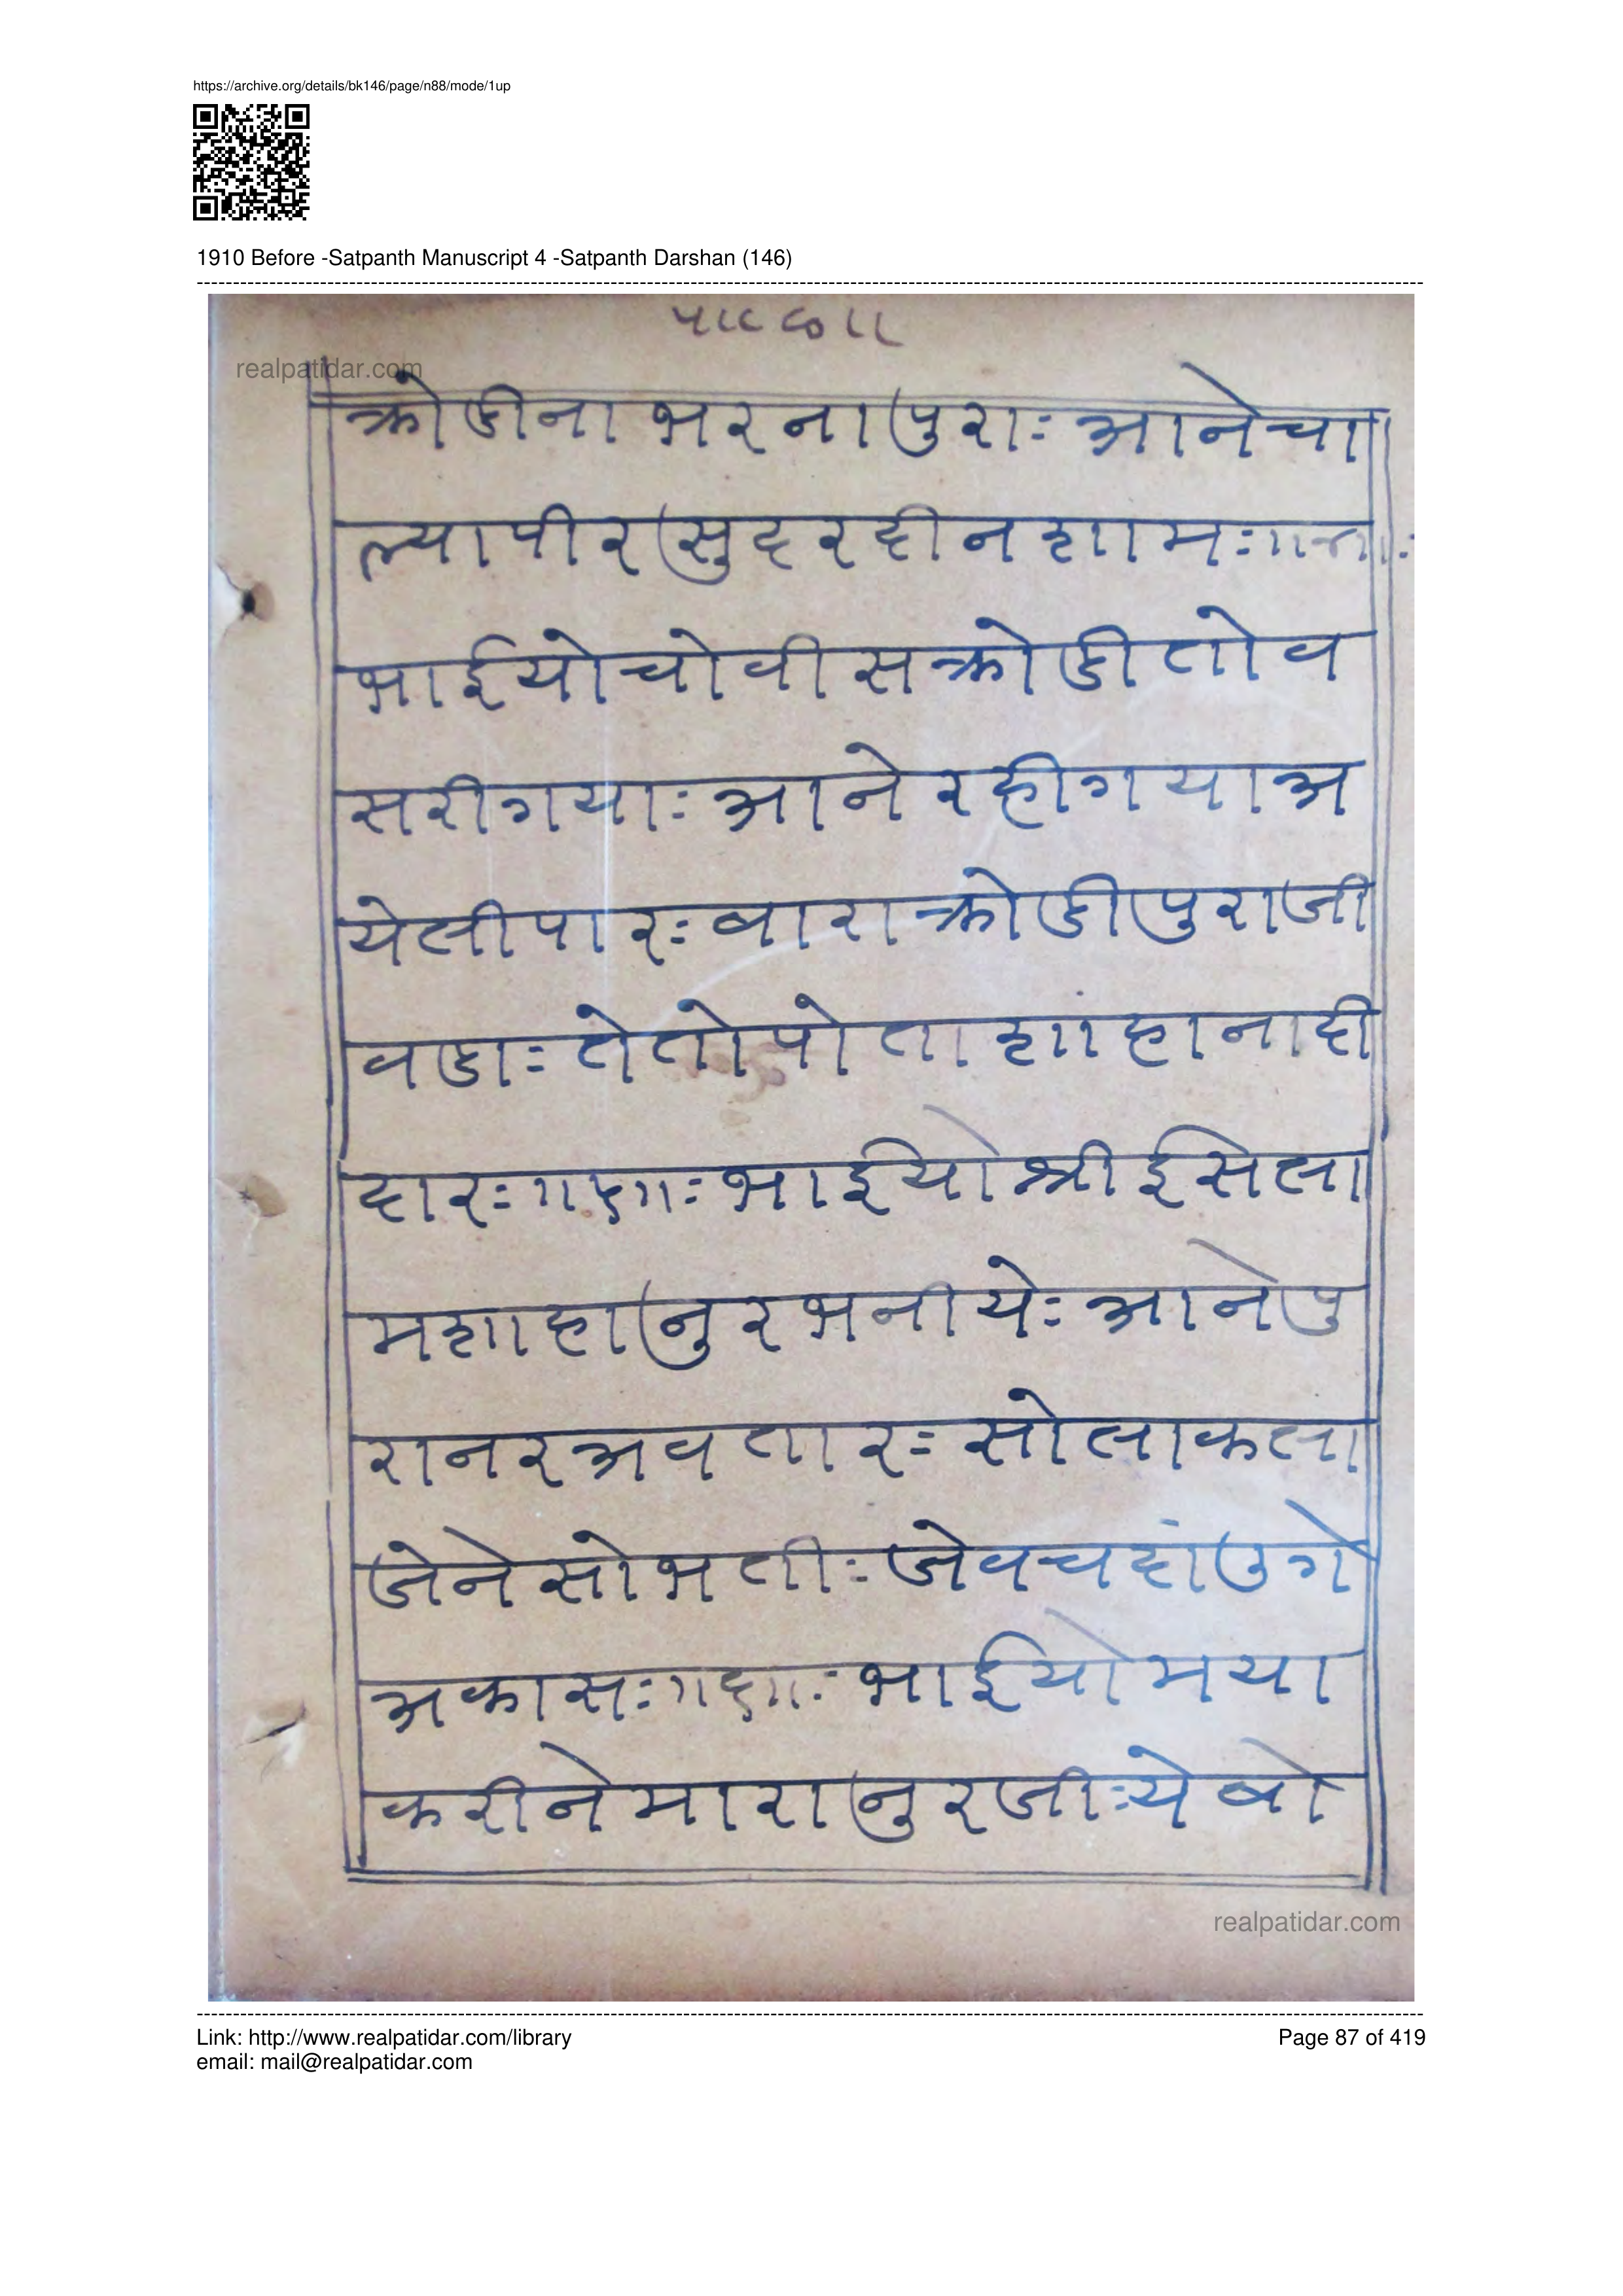 https://archive.org/details/bk146/page/n88/mode/1up
1910 Before -Satpanth Manuscript 4 -Satpanth Darshan (146)
realpatidar.com
क्रोडीना भरना पुराः आने चा
ल्या पीर सुदरदीन शामः
भाईयो चोवीस क्रोडी तो व
सरी गयाः आने रही गया अ
येली पारः बारा क्रोडी पुरा जी
वडाः ते तो पोता शाहाना दी
दारः भाईयो श्री ईसला
म शाहा नुर भनीयेः आने पु
रा नर अवतारः सोला कला
जेने सोभतीः जेव चदां उगे
अकासः भाईयो मया
करीने मारा नुरजीः ये बो
realpatidar.com
Link: http://www.realpatidar.com/library
Page 87 of 419
email: mail@realpatidar.com